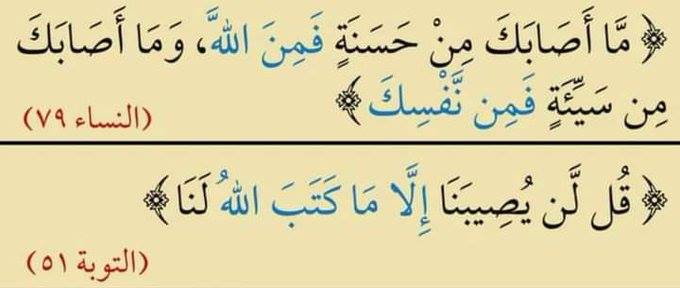 ﴿ مَّا أَصَابَكَ مِنْ حَسَنَةٍ فَمِنَ اللَّهِ، وَمَا أَصَابَكَ
مِن سَيِّئَةٍ فَمِن نَّفْسِكَ ﴾
(النساء ٧٩)
﴿ قُل لَّن يُصِيبَنَا إِلَّا مَا كَتَبَ اللهُ لَنَا ﴾
(التوبة ٥١)